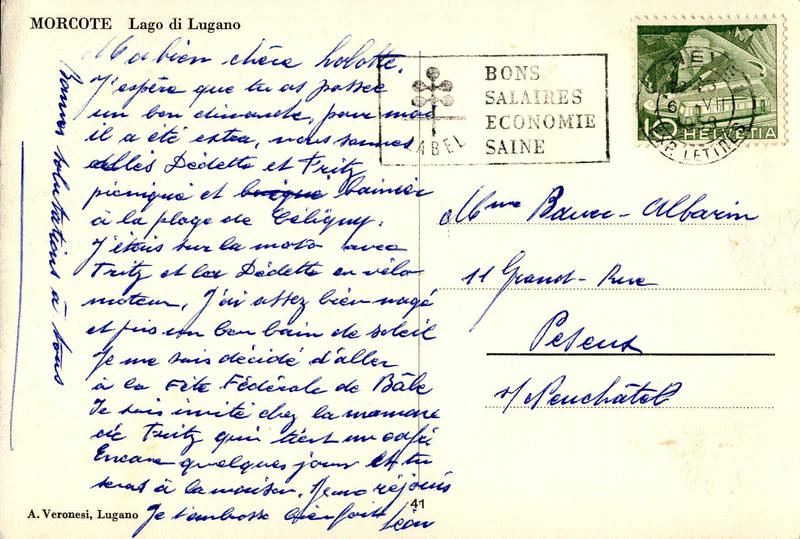 MORCOTE Lago di Lugano
Ma bien chère lolotte.
J'espère que tu as passée
un bon dimanche, pour moi
il a été extra, nous sommes
allés Dédette et Fritz
piqniqué et bainier
à la plage de Céligny.
J'étais sur la moto avec
Fritz et la Dédette en vélo
moteur, J'ai assez bien nagé
et puis un bon bain de soleil
Je me suis décidé d'aller
à la Fête Fédérale de Bâle
Je suis invité chez la maman
de Fritz qui tient un café
Encore quelques jours et tu
seras à la maison. Je me réjouis
Je t'embrasse bien fort
Léon
Bonnes salutations à tous
A. Veronesi, Lugano
41
LABEL
BONS
SALAIRES
ECONOMIE
SAINE
10 HELVETIA
EXP. LETTRES
Mme Bauer-Albarin
11 Grand-Rue
Peseux
s/Neuchâtel